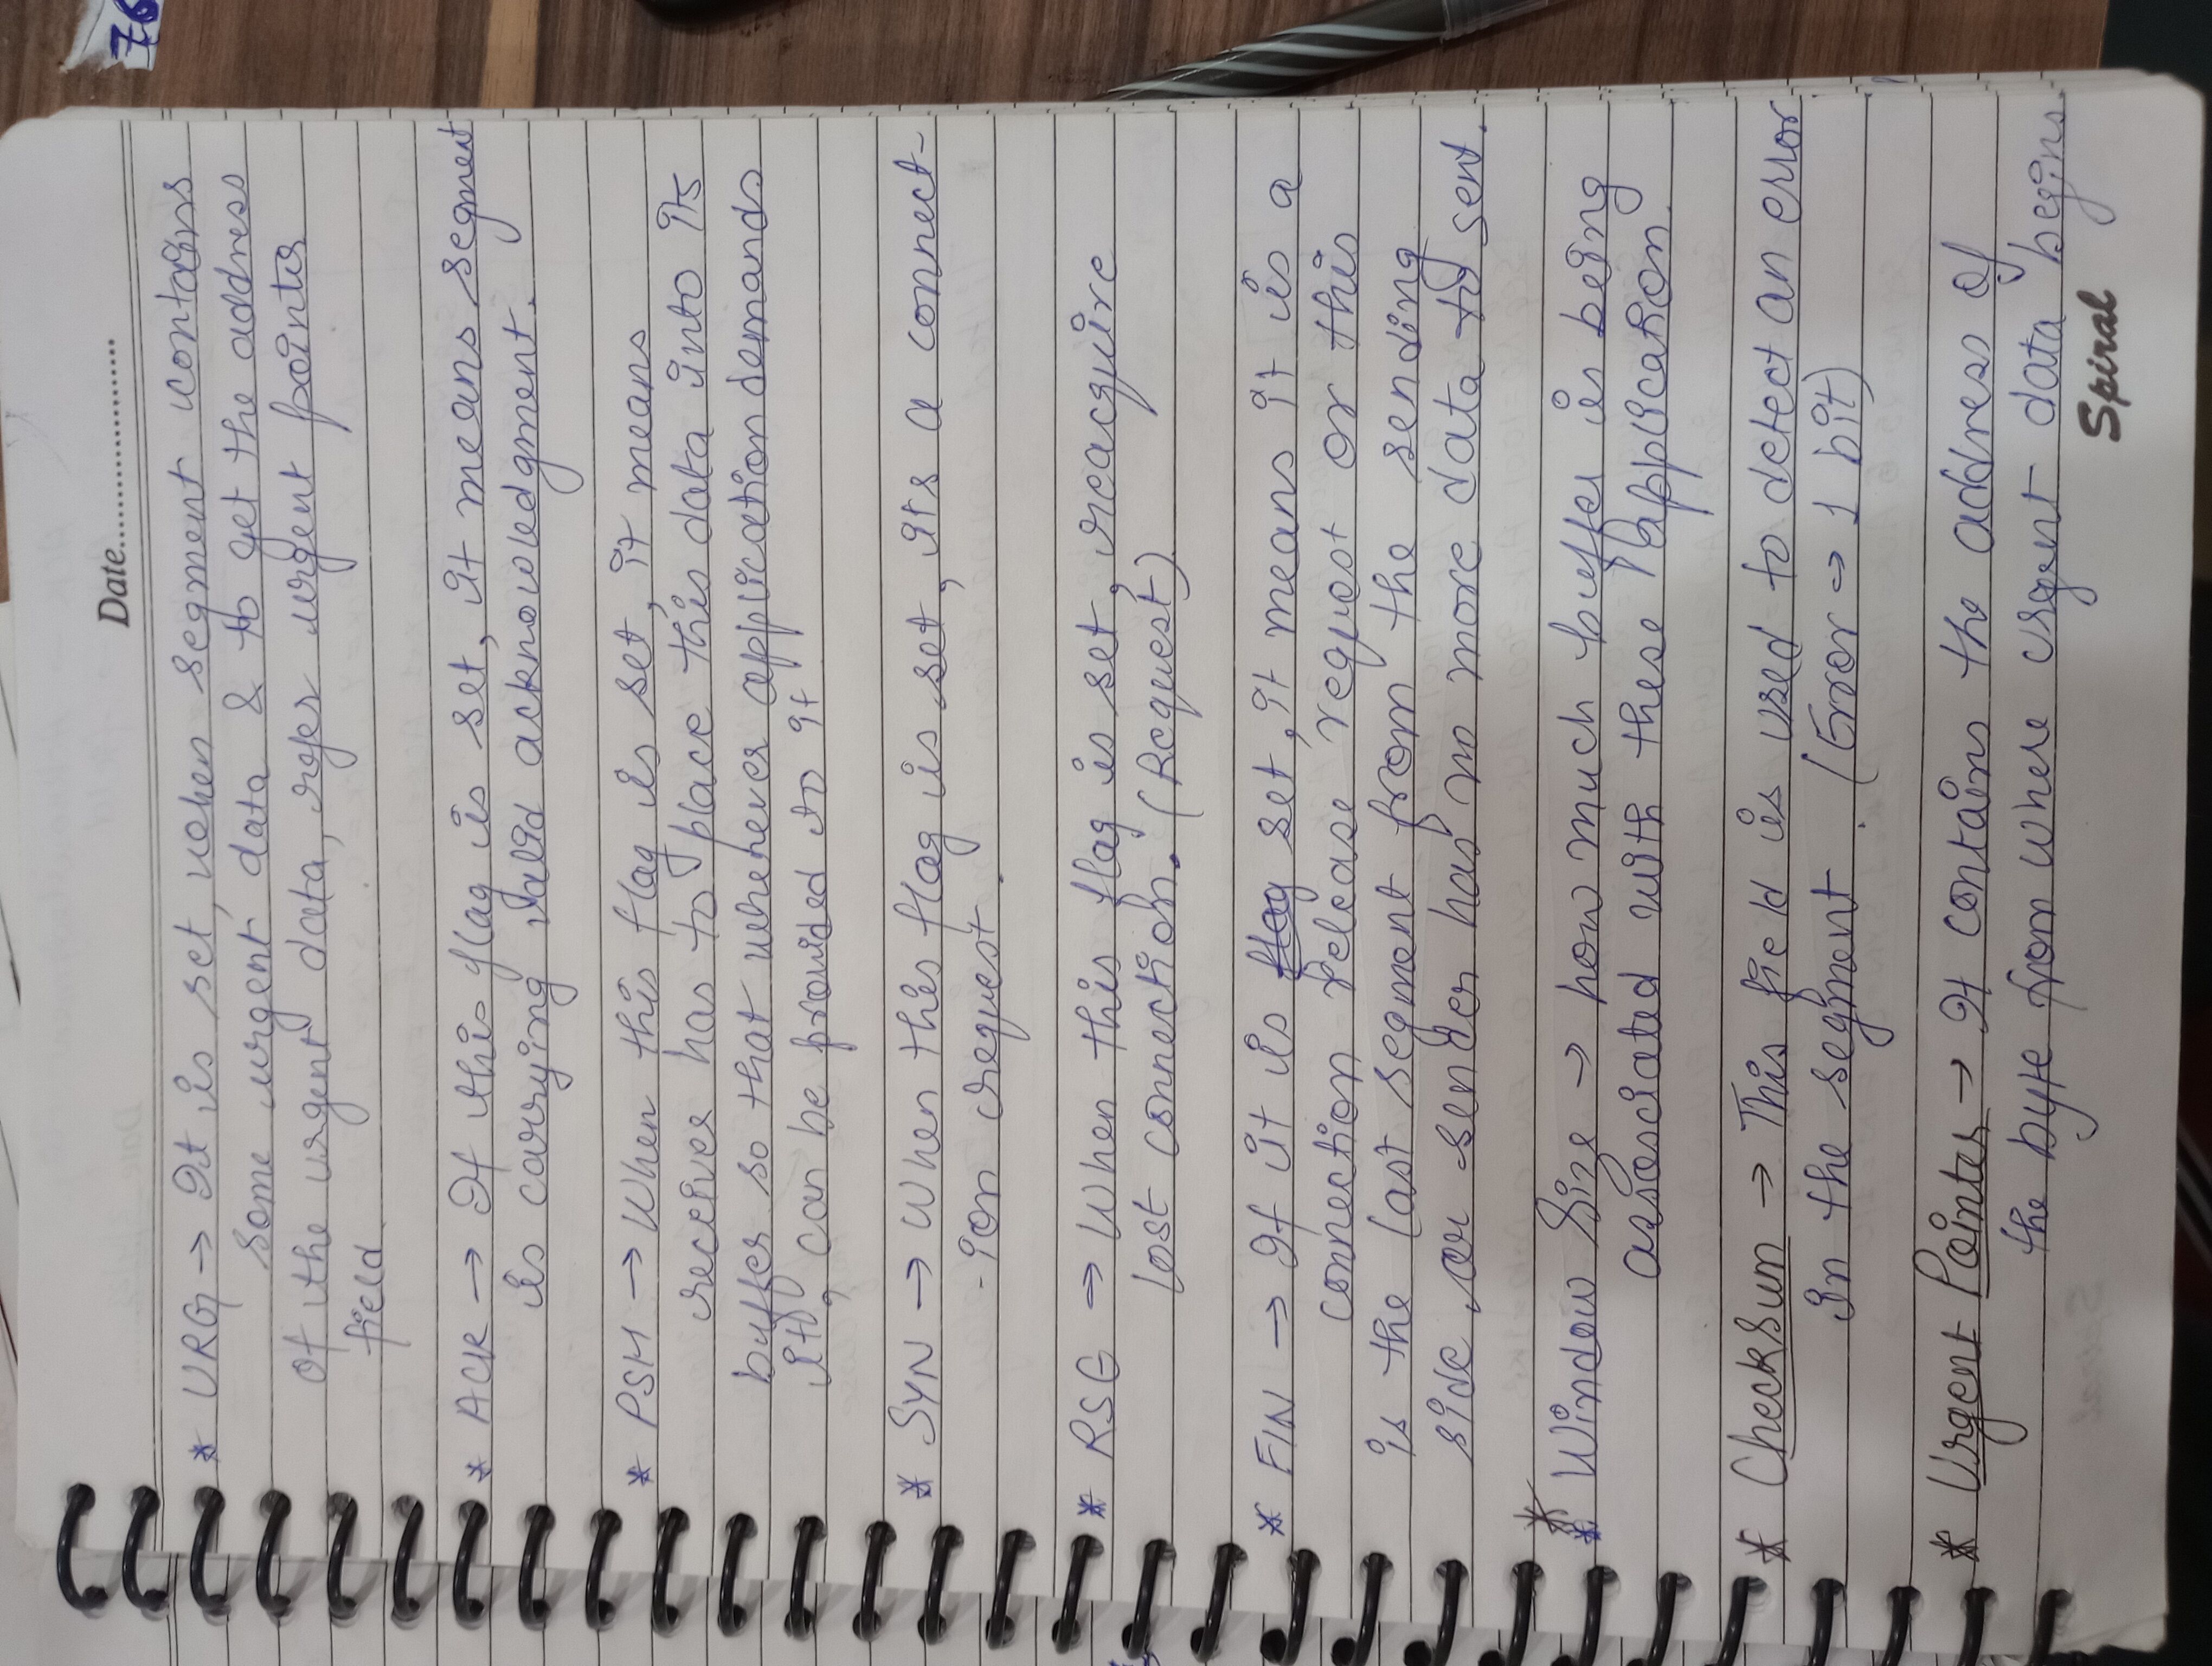 Date.....................
76
* URG → It is set, when segment contains
some urgent data & to get the address
of the urgent data, refer urgent pointer
field.
* ACK → If this flag is set, it means segment
is carrying valid acknowledgment.
* PSH → When this flag is set, it means
receiver has to place this data into its
buffer so that whenever application demands
it, can be provided to it.
* SYN → When this flag is set, its a connect-
-ion request.
* RSE → When this flag is set, reacquire
lost connection. (Request)
* FIN → If it is flag set, it means it is a
connection release request or this
is the last segment from the sending
side or sender has no more data to sent.
* Window Size → how much buffer is being
associated with these application.
* CheckSum → This field is used to detect an error
in the segment. (Error → 1 bit)
* Urgent Pointer → It contains the address of
the byte from where urgent data begins.
Spiral